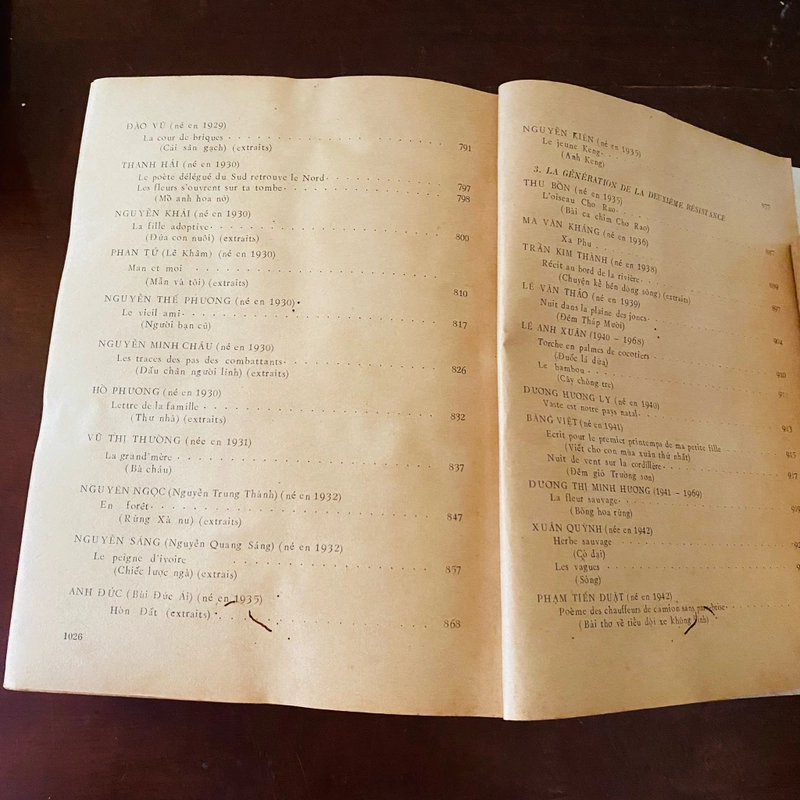 ĐÀO VŨ (né en 1929)
La cour de briques 791
(Cái sân gạch) (extraits)
THANH HẢI (né en 1930)
Le poète délégué du Sud retrouve le Nord 797
Les fleurs s'ouvrent sur ta tombe 798
(Mồ anh hoa nở)
NGUYỄN KHẢI (né en 1930)
La fille adoptive 800
(Đứa con nuôi) (extraits)
PHAN TỨ (Lê Khâm) (né en 1930)
Man et moi 810
(Mẫn và tôi) (extraits)
NGUYỄN THẾ PHƯƠNG (né en 1930)
Le vieil ami 817
(Người bạn cũ)
NGUYỄN MINH CHÂU (né en 1930)
Les traces des pas des combattants 826
(Dấu chân người lính) (extraits)
HỒ PHƯƠNG (né en 1930)
Lettre de la famille 832
(Thư nhà) (extraits)
VŨ THỊ THƯỜNG (née en 1931)
La grand'mère 837
(Bà cháu)
NGUYÊN NGỌC (Nguyễn Trung Thành) (né en 1932)
En forêt 847
(Rừng Xà nu) (extraits)
NGUYỄN SÁNG (Nguyễn Quang Sáng) (né en 1932)
Le peigne d'ivoire 857
(Chiếc lược ngà) (extrais)
ANH ĐỨC (Bùi Đức Ái) (né en 1935)
Hòn Đất (extraits) 868
1026
NGUYỄN KIÊN (né en 1935)
Le jeune Keng
(Anh Keng)
3. LA GÉNÉRATION DE LA DEUXIÈME RÉSISTANCE
THU BỒN (né en 1935)
L'oiseau Cho Rao
(Bài ca chim Chơ Rao)
MA VĂN KHÁNG (né en 1936)
Xa Phu
TRẦN KIM THÀNH (né en 1938)
Récit au bord de la rivière
(Chuyện kể bên dòng sông) (extraits)
LÊ VĂN THẢO (né en 1939)
Nuit dans la plaine des joncs
(Đêm Tháp Mười)
LÊ ANH XUÂN (1940 - 1968)
Torche en palmes de cocotiers
(Đuốc lá dừa)
Le bambou
(Cây chông tre)
DƯƠNG HƯƠNG LY (né en 1940)
Vaste est notre pays natal 913
BẰNG VIỆT (né en 1941)
Ecrit pour le premier printemps de ma petite fille 915
(Viết cho con mùa xuân thứ nhất)
Nuit de vent sur la cordillère 917
(Đêm gió Trường sơn)
DƯƠNG THỊ MINH HƯƠNG (1941 - 1969)
La fleur sauvage
(Bông hoa rừng)
XUÂN QUỲNH (née en 1942)
Herbe sauvage
(Cỏ dại)
Les vagues
(Sóng)
PHẠM TIẾN DUẬT (né en 1942)
Poème des chauffeurs de camion sans
(Bài thơ về tiểu đội xe không kính)